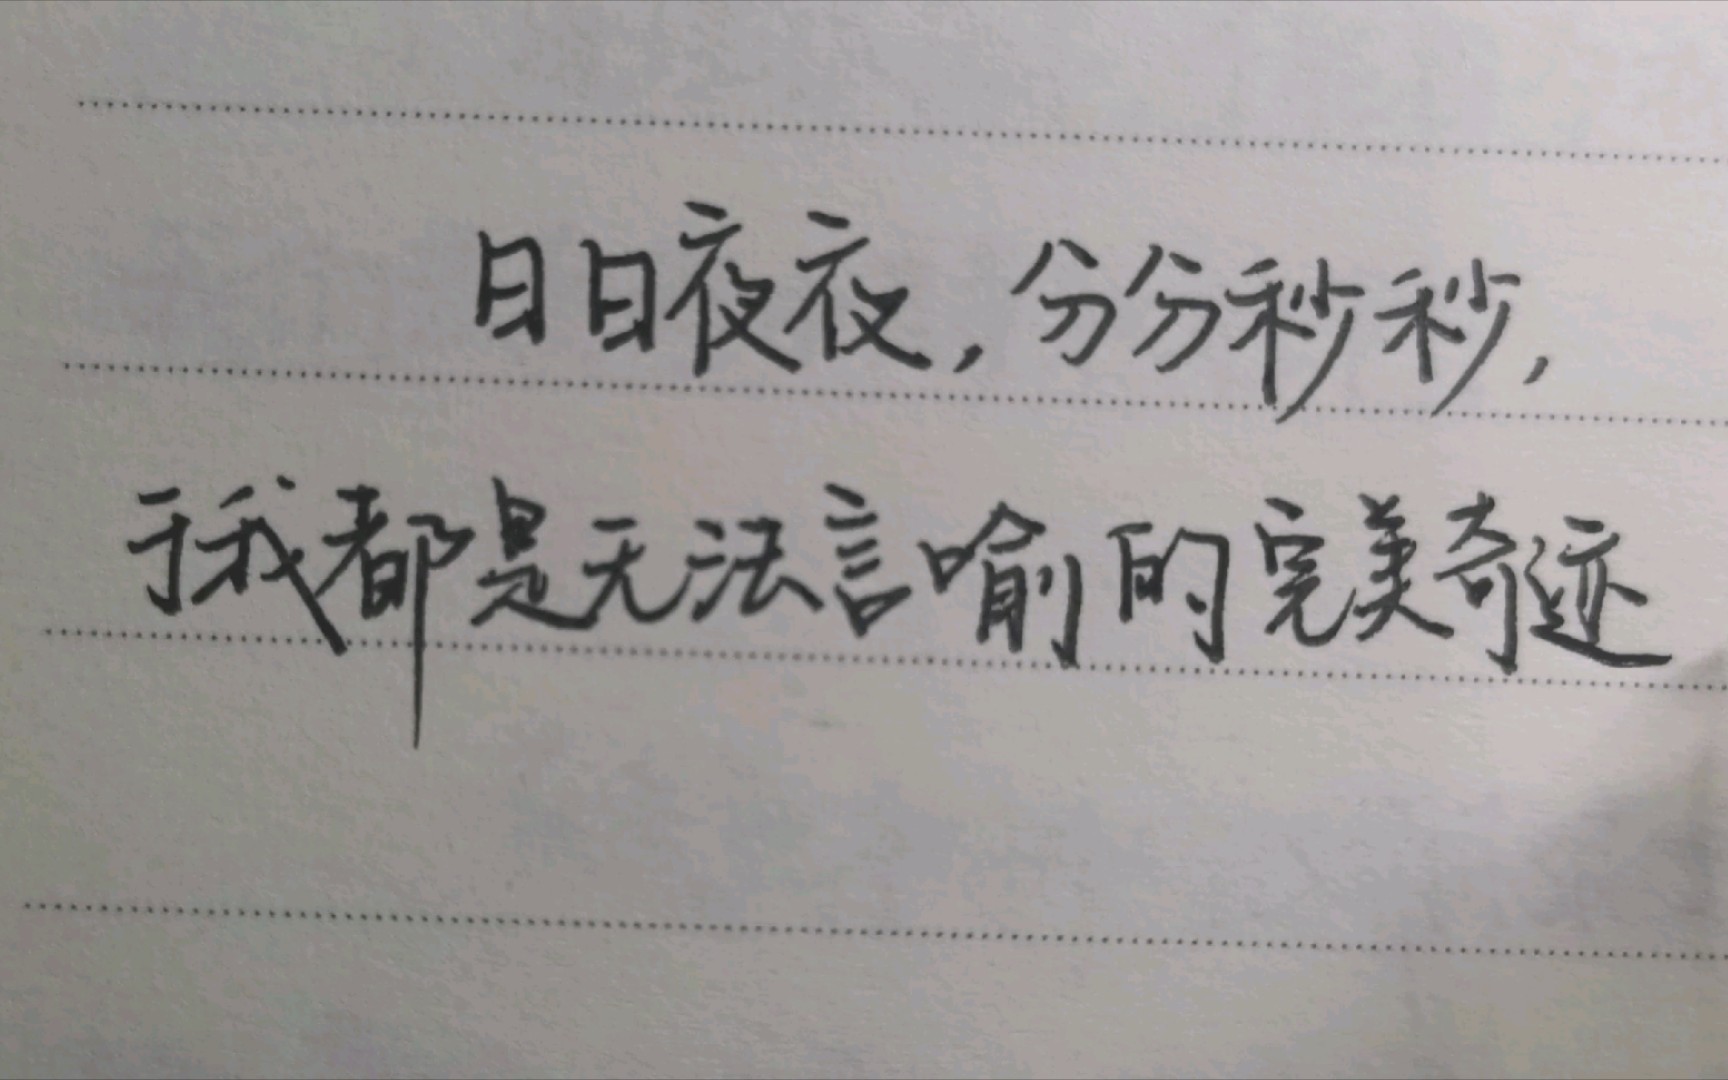 日日夜夜，分分秒秒，
于我都是无法言喻的完美奇迹